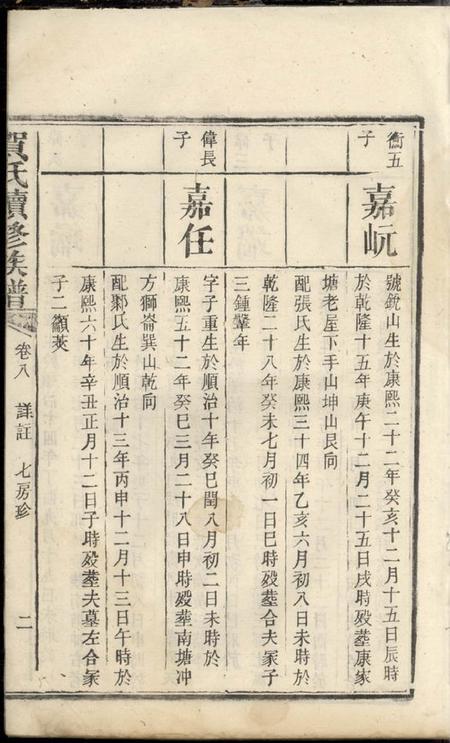 衡五子
嘉岏
號銳山生於康熙二十二年癸亥十二月十五日辰時
於乾隆十五年庚午十二月二十五日戌時殁塟康家
塘老屋下手山坤山艮向
配張氏生於康熙三十四年乙亥六月初八日未時於
乾隆二十八年癸未七月初一日巳時殁塟合夫冢子
三鍾鞶年
偉長子
嘉任
字子重生於順治十年癸巳閏八月初二日未時於
康熙五十二年癸巳三月二十八日申時殁塟南塘冲
方獅崙巽山乾向
配鄒氏生於順治十三年丙申十二月十三日午時於
康熙六十年辛丑正月十二日子時殁塟夫墓左合冢
子二顓莢
賀氏續修族譜
卷八 詳註 七房珍 二